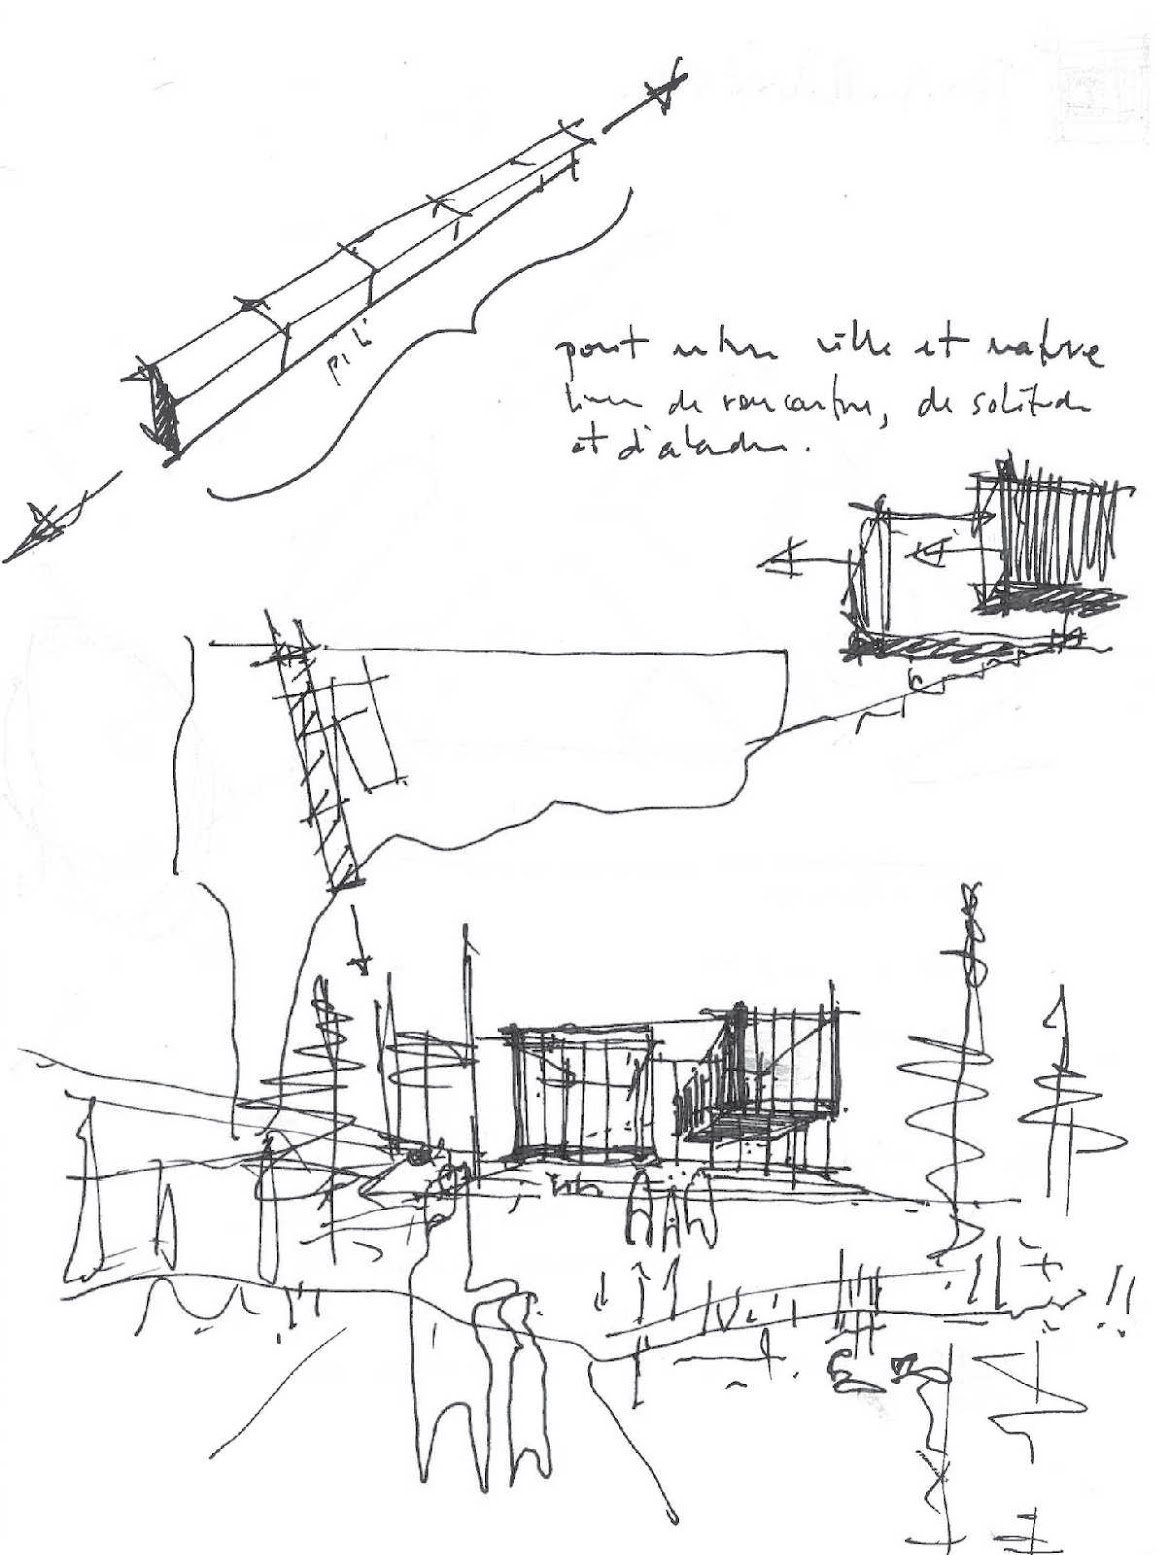 pont entre ville et nature
lieu de rencontre, de solitude
et d'